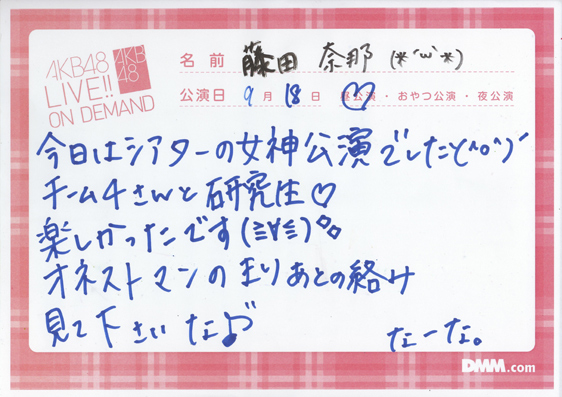 AKB48
LIVE!!
ON DEMAND
AKB
48
名前 藤田 奈那 (*´ω`*)
公演日 9月18日 昼公演・おやつ公演・夜公演
今日はシアターの女神公演でした\(^o^)/
チーム4さんと研究生♡
楽しかったです(≧∀≦)
オネストマンのまりあとの絡み
見て下さいな♪
なーな。
DMM.com